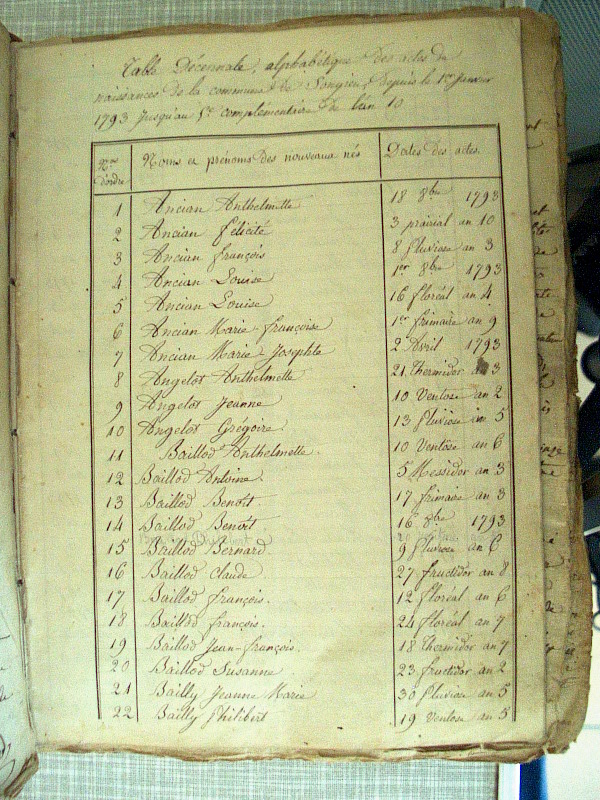 Table Décennale, alphabétique des actes de
naissances de la commune de Songieu, depuis le 1er Janvier
1793 jusqu'au 5e complémentaire de l'an 10
Nos d'ordre Noms et prénoms des nouveaux nés Dates des actes.
1 Ancian Anthelmette 18 8bre 1793
2 Ancian félicité 3 prairial an 10
3 Ancian françois 8 pluviose an 3
4 Ancian Louise 1er 8bre 1793
5 Ancian Louise 16 floréal an 4
6 Ancian Marie françoise 1er frimaire an 9
7 Ancian Marie Josephte 2 Avril 1793
8 Angelot Anthelmette 21 Thermidor an 3
9 Angelot Jeanne 10 Ventose an 2
10 Angelot Grégoire 13 pluviose an 5
11 Baillod Anthelmette 10 Ventose an 6
12 Baillod Antoine 5 Messidor an 3
13 Baillod Benoit 17 frimaire an 3
14 Baillod Benoit 16 8bre 1793
15 Baillod Bernard 9 pluviose an 6
16 Baillod Claude 27 fructidor an 8
17 Baillod françois 12 floréal an 6
18 Baillod françois 24 floréal an 7
19 Baillod Jean-françois 18 Thermidor an 7
20 Baillod Susanne 23 fructidor an 2
21 Bailly Jeanne Marie 30 pluviose an 5
22 Bailly philibert 19 Ventose an 5